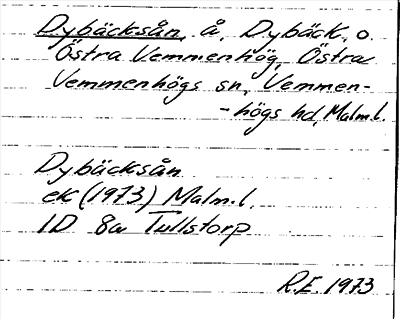 Dybäcksån, å, Dybäck, o.
Östra Vemmenhög, Östra
Vemmenhögs sn, Vemmen-
-högs hd, Malm.l.
Dybäcksån
ek (1973) Malm.l.
1D 8a Tullstorp
R.E. 1973